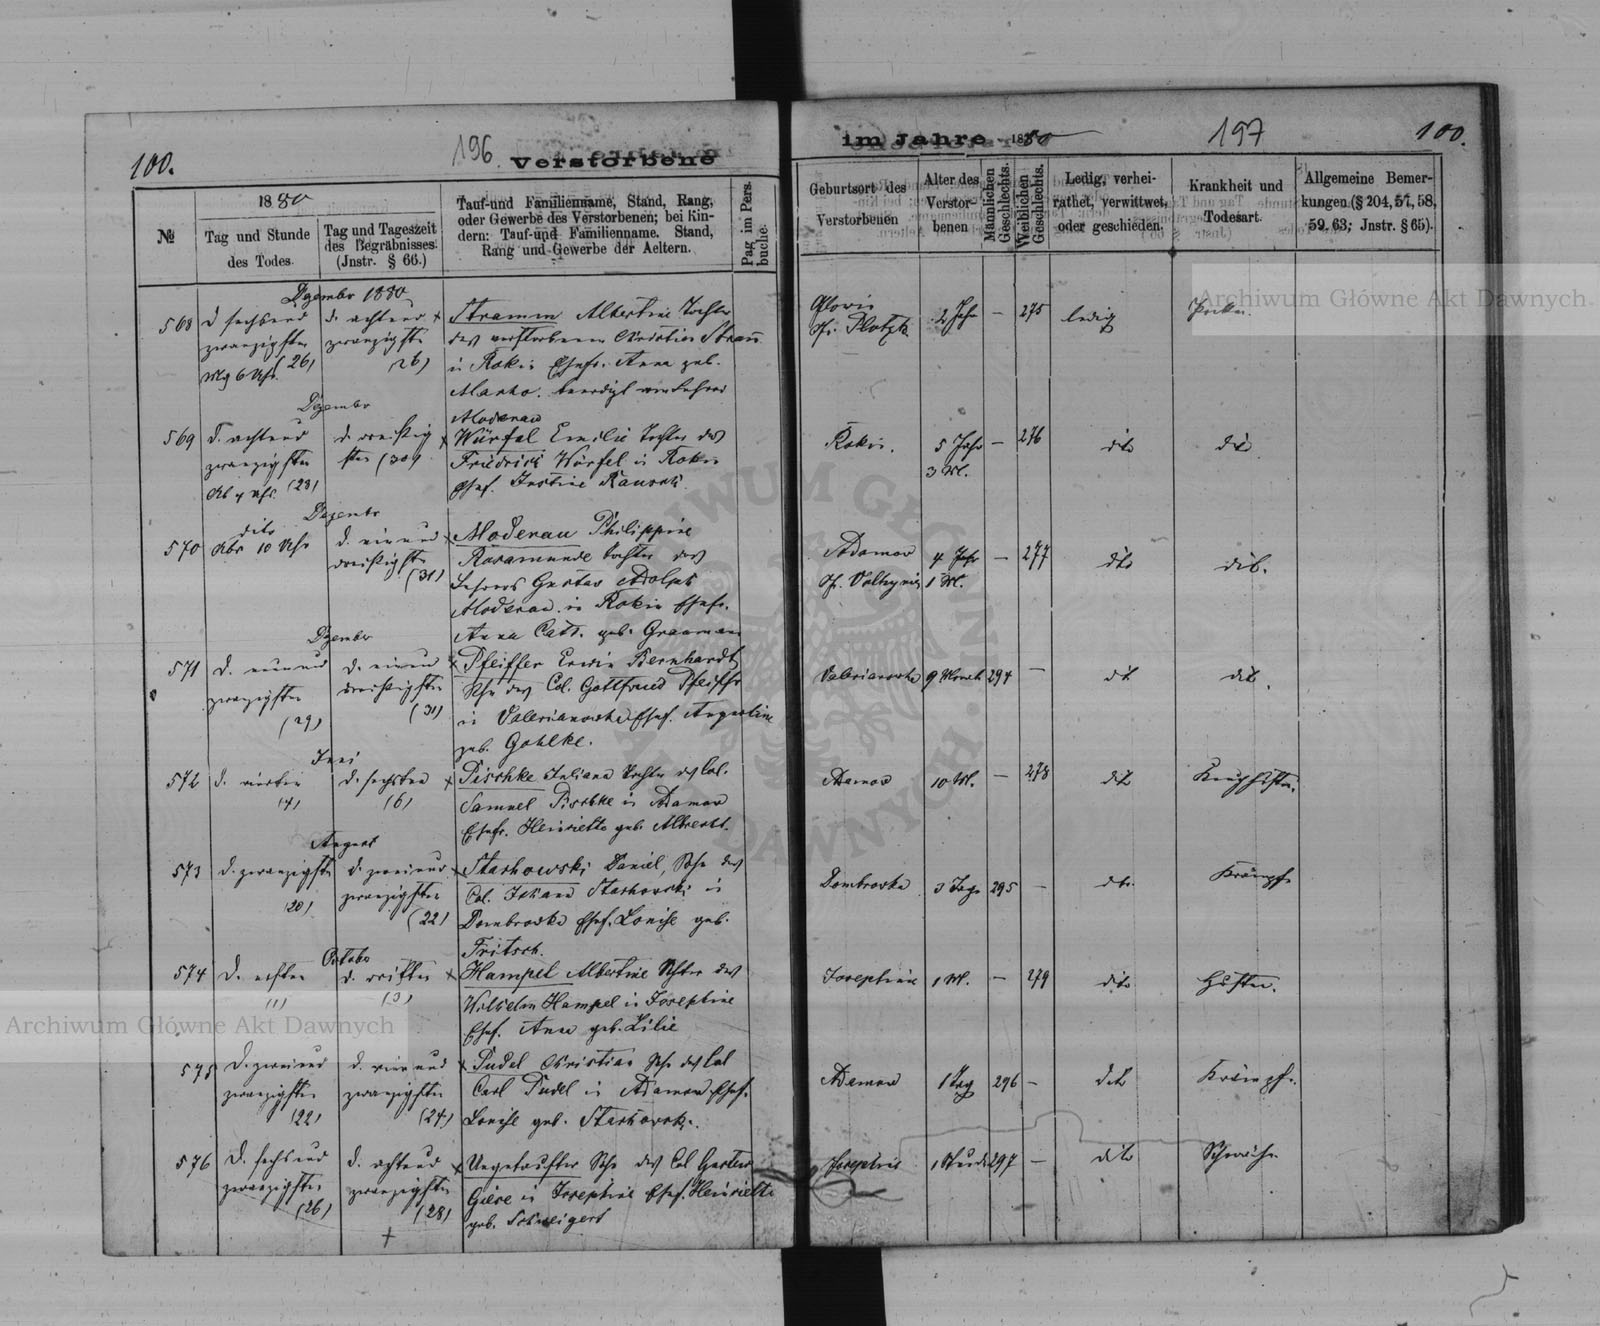 100.
196
Verstorbene
im Jahre 1880
197
100.
№
1880
Tag und Stunde
des Todes.
Tag und Tageszeit
des Begräbnisses.
(Jnstr. § 66.)
Tauf-und Familienname, Stand, Rang,
oder Gewerbe des Verstorbenen; bei Kin-
dern: Tauf-und Familienname. Stand,
Rang und Gewerbe der Aeltern.
Pag im Pers.
buche.
Geburtsort des
Verstorbenen
Alter des
Verstor-
benen
Männlichen
Geschlechts.
Weiblichen
Geschlechts.
Ledig, verhei-
rathet, verwittwet,
oder geschieden.
Krankheit und
Todesart.
Allgemeine Bemer-
kungen (§ 204, 57, 58,
59. 63; Jnstr. § 65).
Archiwum Główne Akt Dawnych
Dezember 1880
568
d. sechs und
zwanzigsten
(26)
Mg 6 Uhr.
d. acht und
zwanzigsten
Stramm Albertine Tochter
des verstorbenen Christian Stramm
in Rokin Ehefr. Anna geb.
Manko. beerdigt von Lehrer
Moderau
2 Jahr — 275 ledig Pocken.
Dezember
569
d. acht und
zwanzigsten
Ab 4 Uhr.
d. dreißig
sten (30)
Würfel Emilie Tochter des
Friedrich Würfel in Rokin
Ehef. Justine
Rokin. 5 Jahr — 276 dito dito
3 M.
Dezember
570
dito
Abs 10 Uhr
d. ein und
dreißigsten
(31)
Moderau Philippine
Rosamunde Tochter des
Lehrers Gustav Adolph
Moderau in Rokin Ehefr.
Anna Cath. geb. Graumann
Adamow 4 Jahr — 277 dito dito.
1 M.
Dezember
571
d. neun und
zwanzigsten
(29)
d. ein und
dreißigsten
(31)
Pfeiffer Erwin Bernhardt
Sohn des Col. Gottfried Pfeiffer
in Valerianowka Ehef. Augustine
geb. Gohlke.
Valerianowka 9 Monat 294 — dito dito.
Juni
572
d. vierten
(4)
d. sechsten
(6)
Pischke Juliana Tochter des Col.
Samuel Pischke in Adamow
Ehefr. Henriette geb. Albrecht.
Adamow 10 M. — 278 dito Keuchhusten.
August
573
d. zwanzigsten
(20)
d. zwei und
zwanzigsten
(22)
Starkowski Daniel, Sohn des
Col. Johann Starkowski in
Dombrowka Ehef. Louise geb.
Fritsch.
Dombrowka 3 Tage 295 — dito Krämpfe
October
574
d. ersten
(1)
d. dritten
(3)
Hampel Albertine Tochter des
Wilhelm Hampel in Josephine
Ehef. Anna geb. Lilie
Josephine 1 M. — 279 dito Husten.
575
d. zwei und
zwanzigsten
(22)
d. vier und
zwanzigsten
(24)
Pudel Christian Sohn des Col
Carl Pudel in Adamow Ehef.
Louise geb. Starkowski.
Adamow 1 Tag 296 — dito Krämpfe.
576
d. sechs und
zwanzigsten
(26)
d. acht und
zwanzigsten
(28)
Ungetaufter Sohn des Col Gustav
Giese in Josephine Ehef. Henriette
geb. Schweigert
Josephine 1 Stunde 297 — dito Schwäche
Archiwum Główne Akt Dawnych
ARCHIWUM GŁÓWNE AKT DAWNYCH